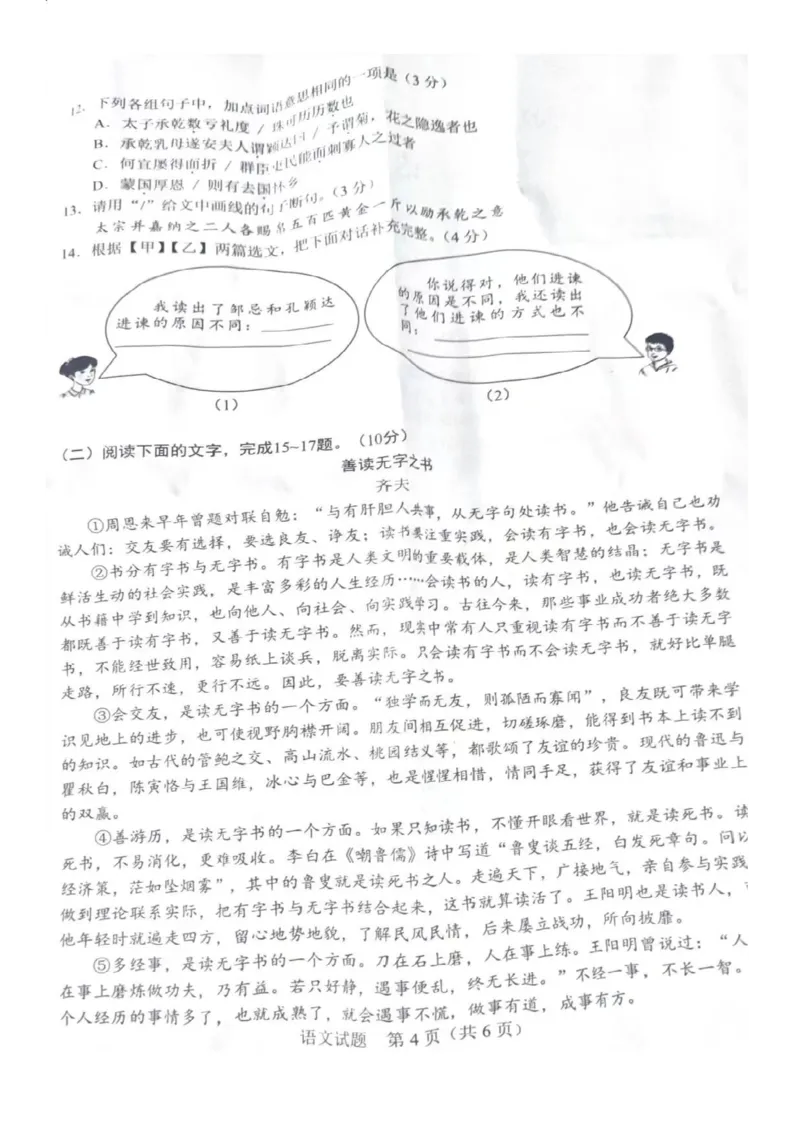 12. 下列各组句子中，加点词语意思相同的一项是（3 分）
A. 太子承乾数亏礼度 / 珠可历历数也
B. 承乾乳母遂安夫人谓颖达曰 / 予谓菊，花之隐逸者也
C. 何宜屡得面折 / 群臣吏民能面刺寡人之过者
D. 蒙国厚恩 / 则有去国怀乡
13. 请用“/”给文中画线的句子断句。（3 分）
太宗并嘉纳之二人各赐帛五百匹黄金一斤以励承乾之意
14. 根据【甲】【乙】两篇选文，把下面对话补充完整。（4 分）
我读出了邹忌和孔颖达
进谏的原因不同：
（1）
你说得对，他们进谏
的原因是不同，我还读出
了他们进谏的方式也不
同：
（2）
（二）阅读下面的文字，完成15~17题。（10分）
善读无字之书
齐夫
①周恩来早年曾题对联自勉：“与有肝胆人共事，从无字句处读书。”他告诫自己也劝
诫人们：交友要有选择，要选良友、诤友；读书要注重实践，会读有字书，也会读无字书。
②书分有字书与无字书。有字书是人类文明的重要载体，是人类智慧的结晶；无字书是
鲜活生动的社会实践，是丰富多彩的人生经历……会读书的人，读有字书，也读无字书，既
从书籍中学到知识，也向他人、向社会、向实践学习。古往今来，那些事业成功者绝大多数
都既善于读有字书，又善于读无字书。然而，现实中常有人只重视读有字书而不善于读无字
书，不能经世致用，容易纸上谈兵，脱离实际。只会读有字书而不会读无字书，就好比单腿
走路，所行不速，更行不远。因此，要善读无字之书。
③会交友，是读无字书的一个方面。“独学而无友，则孤陋而寡闻”，良友既可带来学
识见地上的进步，也可使视野胸襟开阔。朋友间相互促进，切磋琢磨，能得到书本上读不到
的知识。如古代的管鲍之交、高山流水、桃园结义等，都歌颂了友谊的珍贵。现代的鲁迅与
瞿秋白，陈寅恪与王国维，冰心与巴金等，也是惺惺相惜，情同手足，获得了友谊和事业上
的双赢。
④善游历，是读无字书的一个方面。如果只知读书，不懂开眼看世界，就是读死书。读
死书，不易消化，更难吸收。李白在《嘲鲁儒》诗中写道“鲁叟谈五经，白发死章句。问以
经济策，茫如坠烟雾”，其中的鲁叟就是读死书之人。走遍天下，广接地气，亲自参与实践
做到理论联系实际，把有字书与无字书结合起来，这书就算读活了。王阳明也是读书人，
他年轻时就遍走四方，留心地势地貌，了解民风民情，后来屡立战功，所向披靡。
⑤多经事，是读无字书的一个方面。刀在石上磨，人在事上练。王阳明曾说过：“人
在事上磨炼做功夫，乃有益。若只好静，遇事便乱，终无长进。”不经一事，不长一智。
个人经历的事情多了，也就成熟了，就会遇事不慌，做事有道，成事有方。
语文试题 第 4 页（共 6 页）